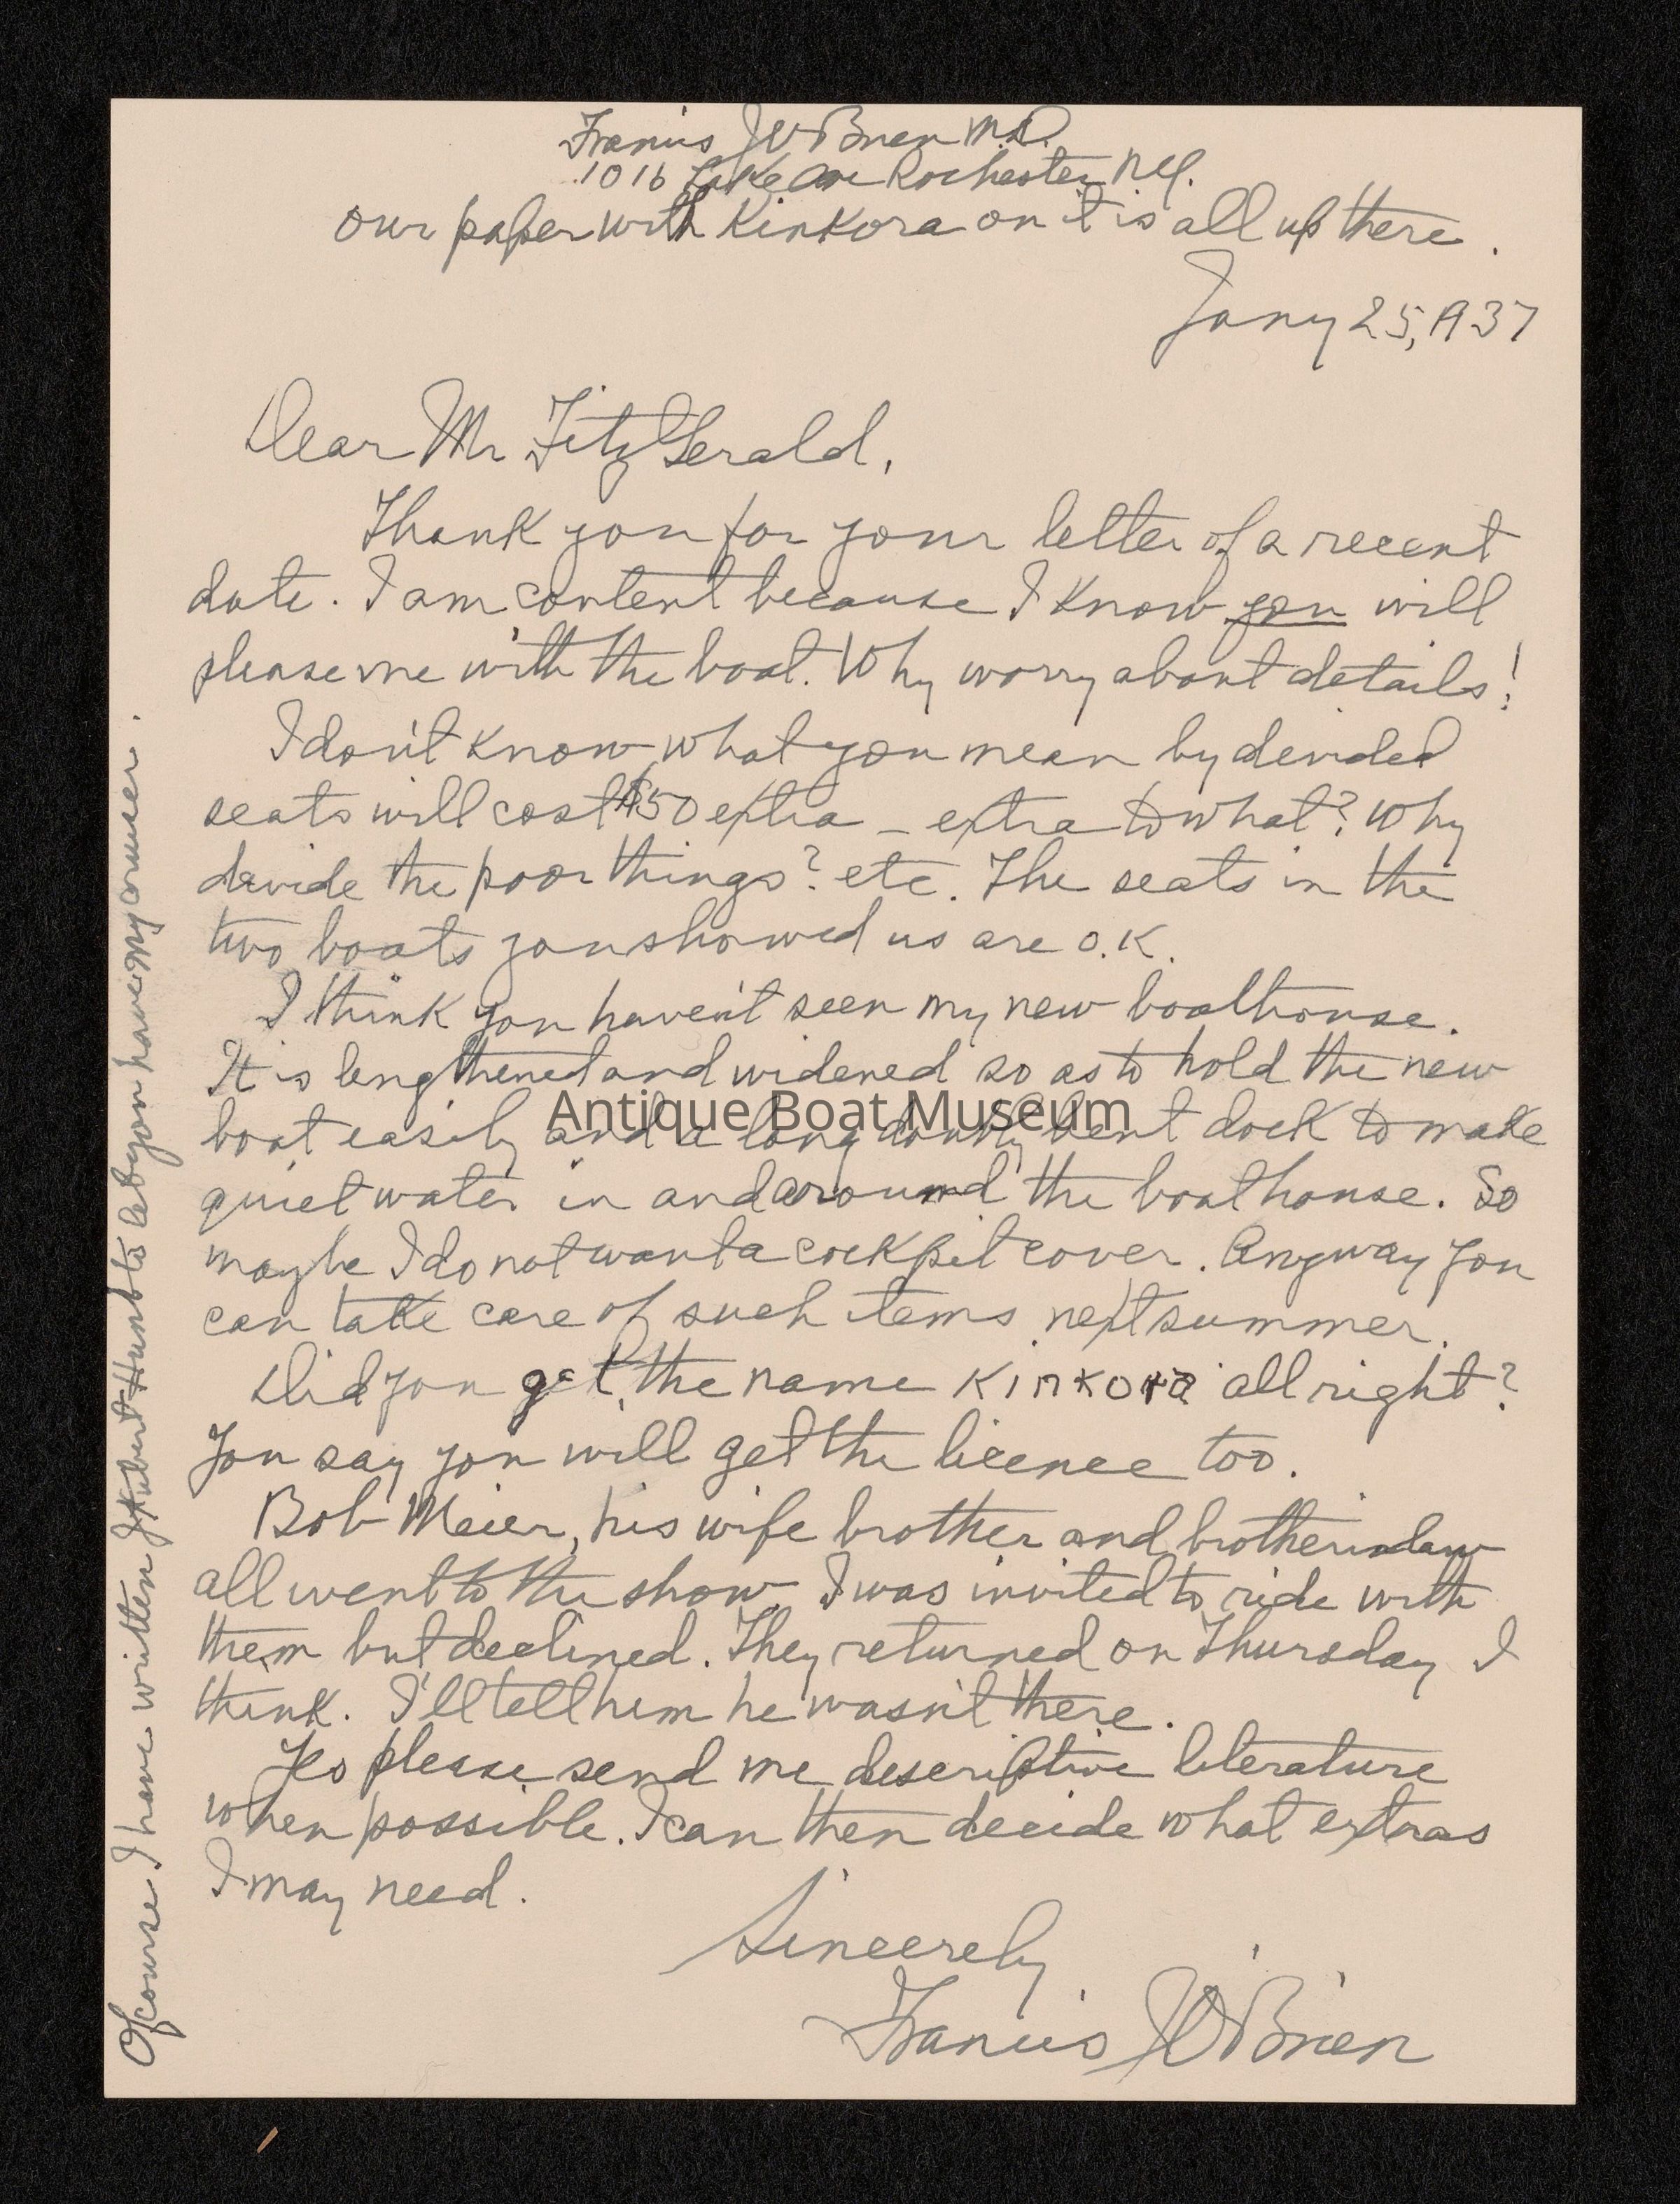 Francis J O'Brien M.D.
1016 Lake Ave Rochester N.Y.
Our paper with Kinkora on it is all up there.
Jany 25, 1937
Dear Mr FitzGerald,
Thank you for your letter of a recent
date. I am content because I know you will
please me with the boat. Why worry about details!
I don't know what you mean by devided
seats will cost $50 extra – extra to what? Why
devide the poor things? etc. The seats in the
two boats you showed us are O.K.
I think you haven't seen my new boathouse.
It is lengthened and widened so as to hold the new
boat easily and a long doubly bent dock to make
Antique Boat Museum
quiet water in and around the boathouse. So
maybe I do not want a cockpit cover. Anyway you
can take care of such items next summer.
Did you get the name Kinkora all right?
You say you will get the licence too.
Bob Meier, his wife brother and brotherinlaw
all went to the show. I was invited to ride with
them but declined. They returned on Thursday I
think. I'll tell him he wasn't there.
Yes please send me descriptive literature
when possible. I can then decide what extras
I may need.
Sincerely
Francis J O'Brien
Of course I have written J Hubert to let you have my cruiser.